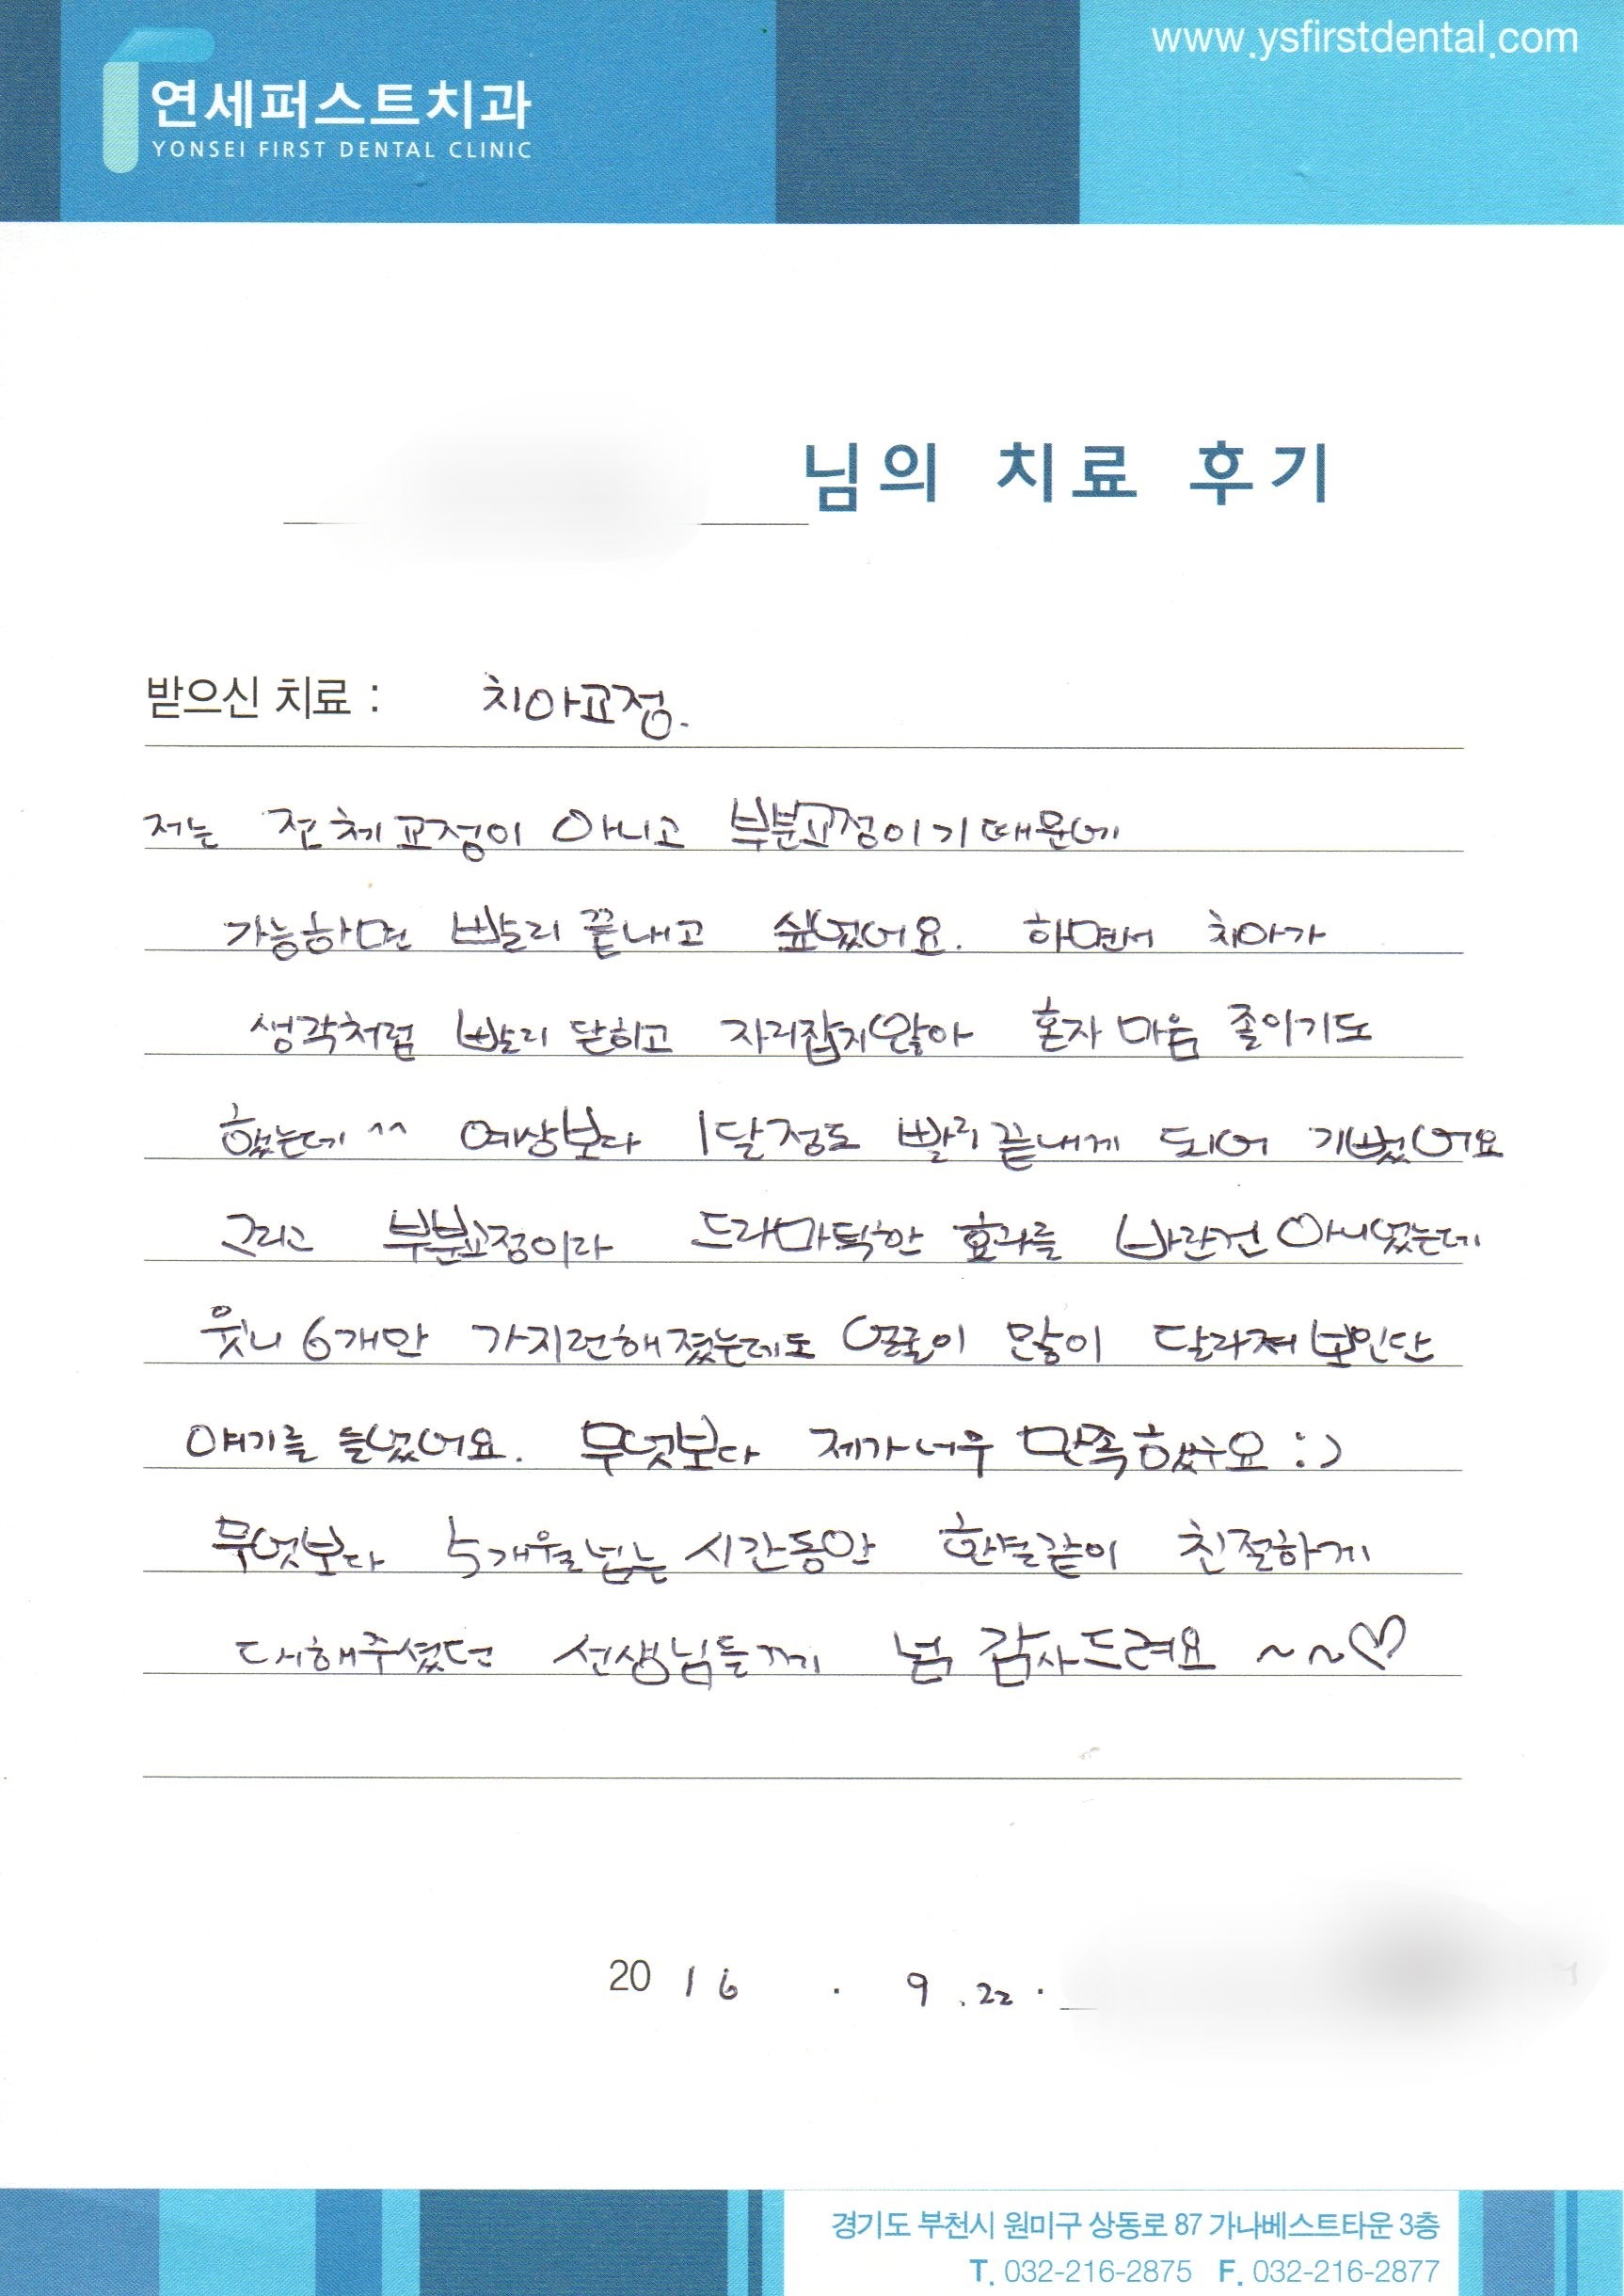 www.ysfirstdental.com
연세퍼스트치과
YONSEI FIRST DENTAL CLINIC
님의 치료 후기
받으신 치료 : 치아교정.
저는 전체교정이 아니고 부분교정이기때문에
가능하면 빨리 끝내고 싶었어요. 하면서 치아가
생각처럼 빨리 닫히고 자리잡지않아 혼자 마음 졸이기도
했는데 ^^ 예상보다 1달정도 빨리끝내게 되어 기뻤어요
그리고 부분교정이라 드라마틱한 효과를 바란건 아니었는데
윗니 6개만 가지런해졌는데도 얼굴이 많이 달라져보인단
얘기를 들었어요. 무엇보다 제가너무 만족했구요 :)
무엇보다 5개월넘는 시간동안 한결같이 친절하게
대해주셨던 선생님들께 넘 감사드려요 ~~♡
2016 . 9 . 22 .
경기도 부천시 원미구 상동로 87 가나베스트타운 3층
T. 032-216-2875 F. 032-216-2877